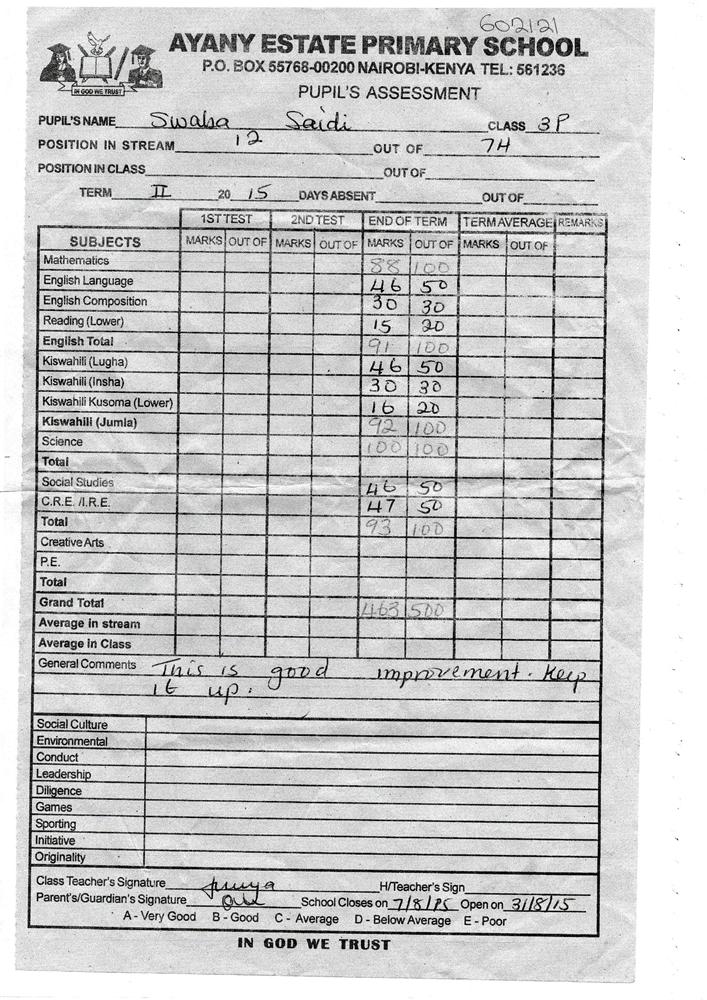 602121
AYANY ESTATE PRIMARY SCHOOL
P.O. BOX 55768-00200 NAIROBI-KENYA TEL: 561236
IN GOD WE TRUST
PUPIL'S ASSESSMENT
PUPIL'S NAME Swaba Saidi CLASS 3P
POSITION IN STREAM 12 OUT OF 74
POSITION IN CLASS OUT OF
TERM II 20 15 DAYS ABSENT OUT OF
1ST TEST 2ND TEST END OF TERM TERM AVERAGE REMARKS
SUBJECTS MARKS OUT OF MARKS OUT OF MARKS OUT OF MARKS OUT OF
Mathematics 88 100
English Language 46 50
English Composition 30 30
Reading (Lower) 15 20
English Total 91 100
Kiswahili (Lugha) 46 50
Kiswahili (Insha) 30 30
Kiswahili Kusoma (Lower) 16 20
Kiswahili (Jumla) 92 100
Science 100 100
Total
Social Studies 46 50
C.R.E. /I.R.E. 47 50
Total 93 100
Creative Arts
P.E.
Total
Grand Total 463 500
Average in stream
Average in Class
General Comments This is good improvement. Keep
it up.
Social Culture
Environmental
Conduct
Leadership
Diligence
Games
Sporting
Initiative
Originality
Class Teacher's Signature H/Teacher's Sign
Parent's/Guardian's Signature School Closes on 7/8/15 Open on 31/8/15
A - Very Good B - Good C - Average D - Below Average E - Poor
IN GOD WE TRUST